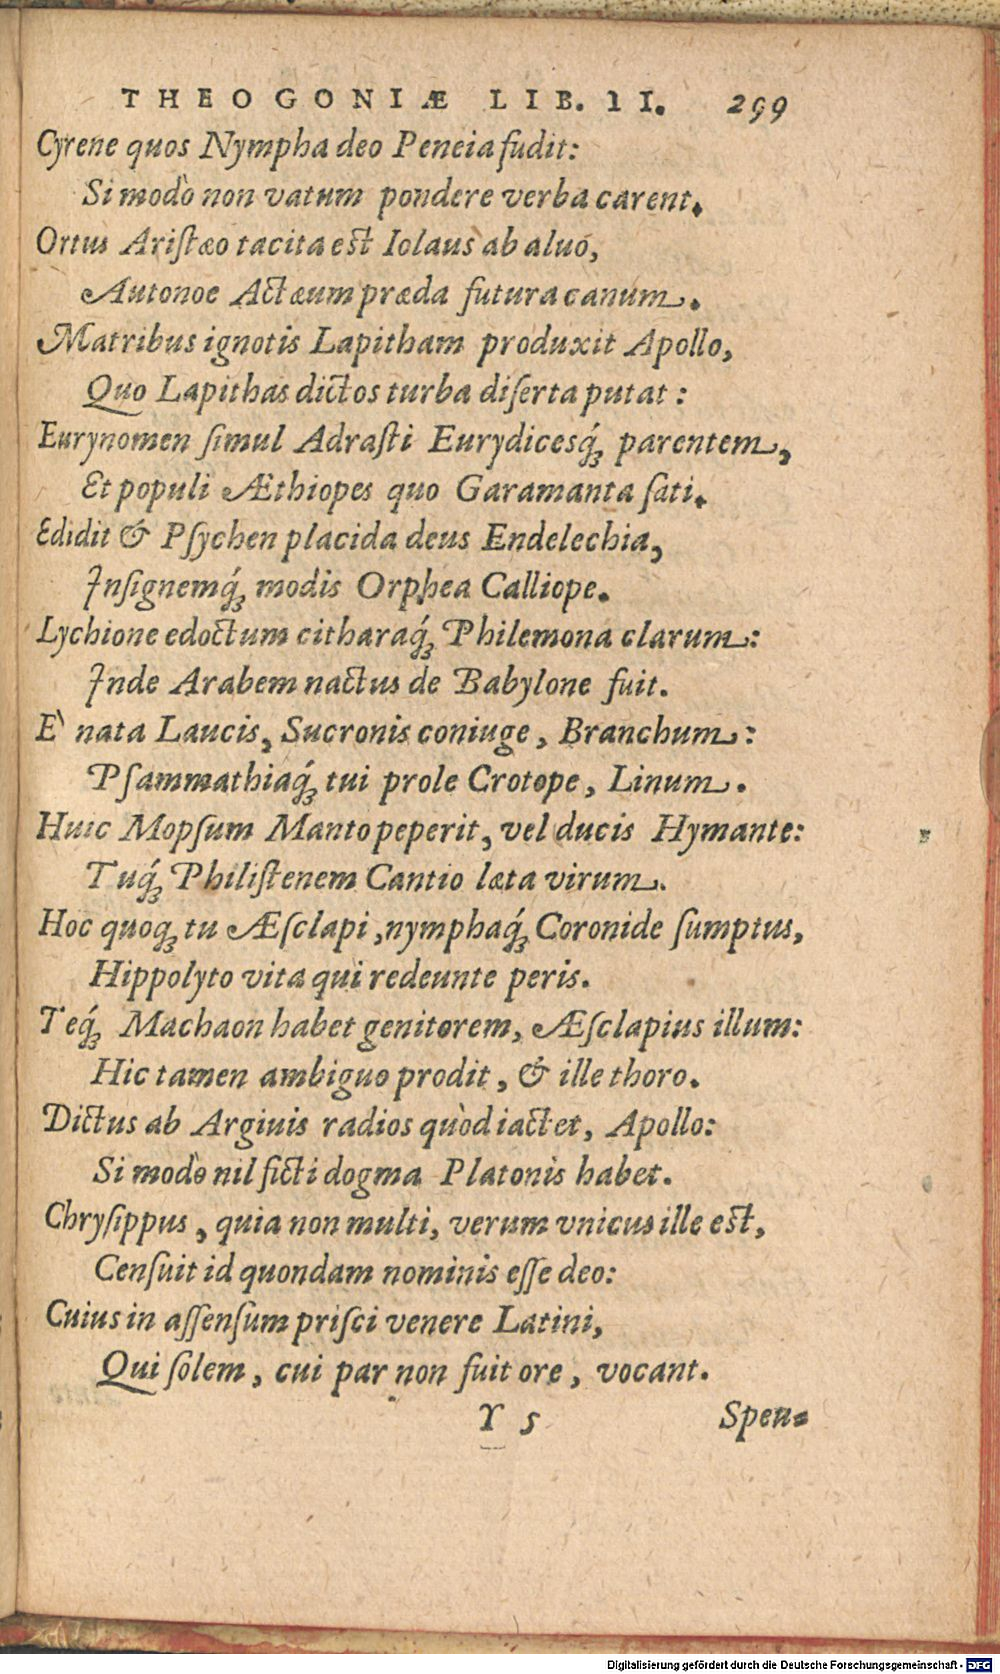 THEOGONIÆ LIB. II. 299
Cyrene quos Nympha deo Peneia fudit:
Si modò non vatum pondere verba carent.
Ortus Aristæo tacita est Iolaus ab aluo,
Autonoe Actæum præda futura canum.
Matribus ignotis Lapitham produxit Apollo,
Quo Lapithas dictos turba diserta putat:
Eurynomen simul Adrasti Eurydicesq́; parentem,
Et populi Æthiopes quo Garamanta sati.
Edidit & Psychen placida deus Endelechia,
Insignemq́; modis Orphea Calliope.
Lychione edoctum citharaq́; Philemona clarum:
Inde Arabem nactus de Babylone fuit.
E` nata Laucis, Sucronis coniuge, Branchum:
Psammathiaq́; tui prole Crotope, Linum.
Huic Mopsum Manto peperit, vel ducis Hymante:
Tuq́; Philistenem Cantio læta virum.
Hoc quoq; tu Æsclapi, nymphaq́; Coronide sumptus,
Hippolyto vita qui redeunte peris.
Teq́; Machaon habet genitorem, Æsclapius illum:
Hic tamen ambiguo prodit, & ille thoro.
Dictus ab Argiuis radios quòd iactet, Apollo:
Si modò nil ficti dogma Platonis habet.
Chrysippus, quia non multi, verum vnicus ille est,
Censuit id quondam nominis esse deo:
Cuius in assensum prisci venere Latini,
Qui solem, cui par non fuit ore, vocant.
Y 5 Speu-
Digitalisierung gefördert durch die Deutsche Forschungsgemeinschaft - DFG